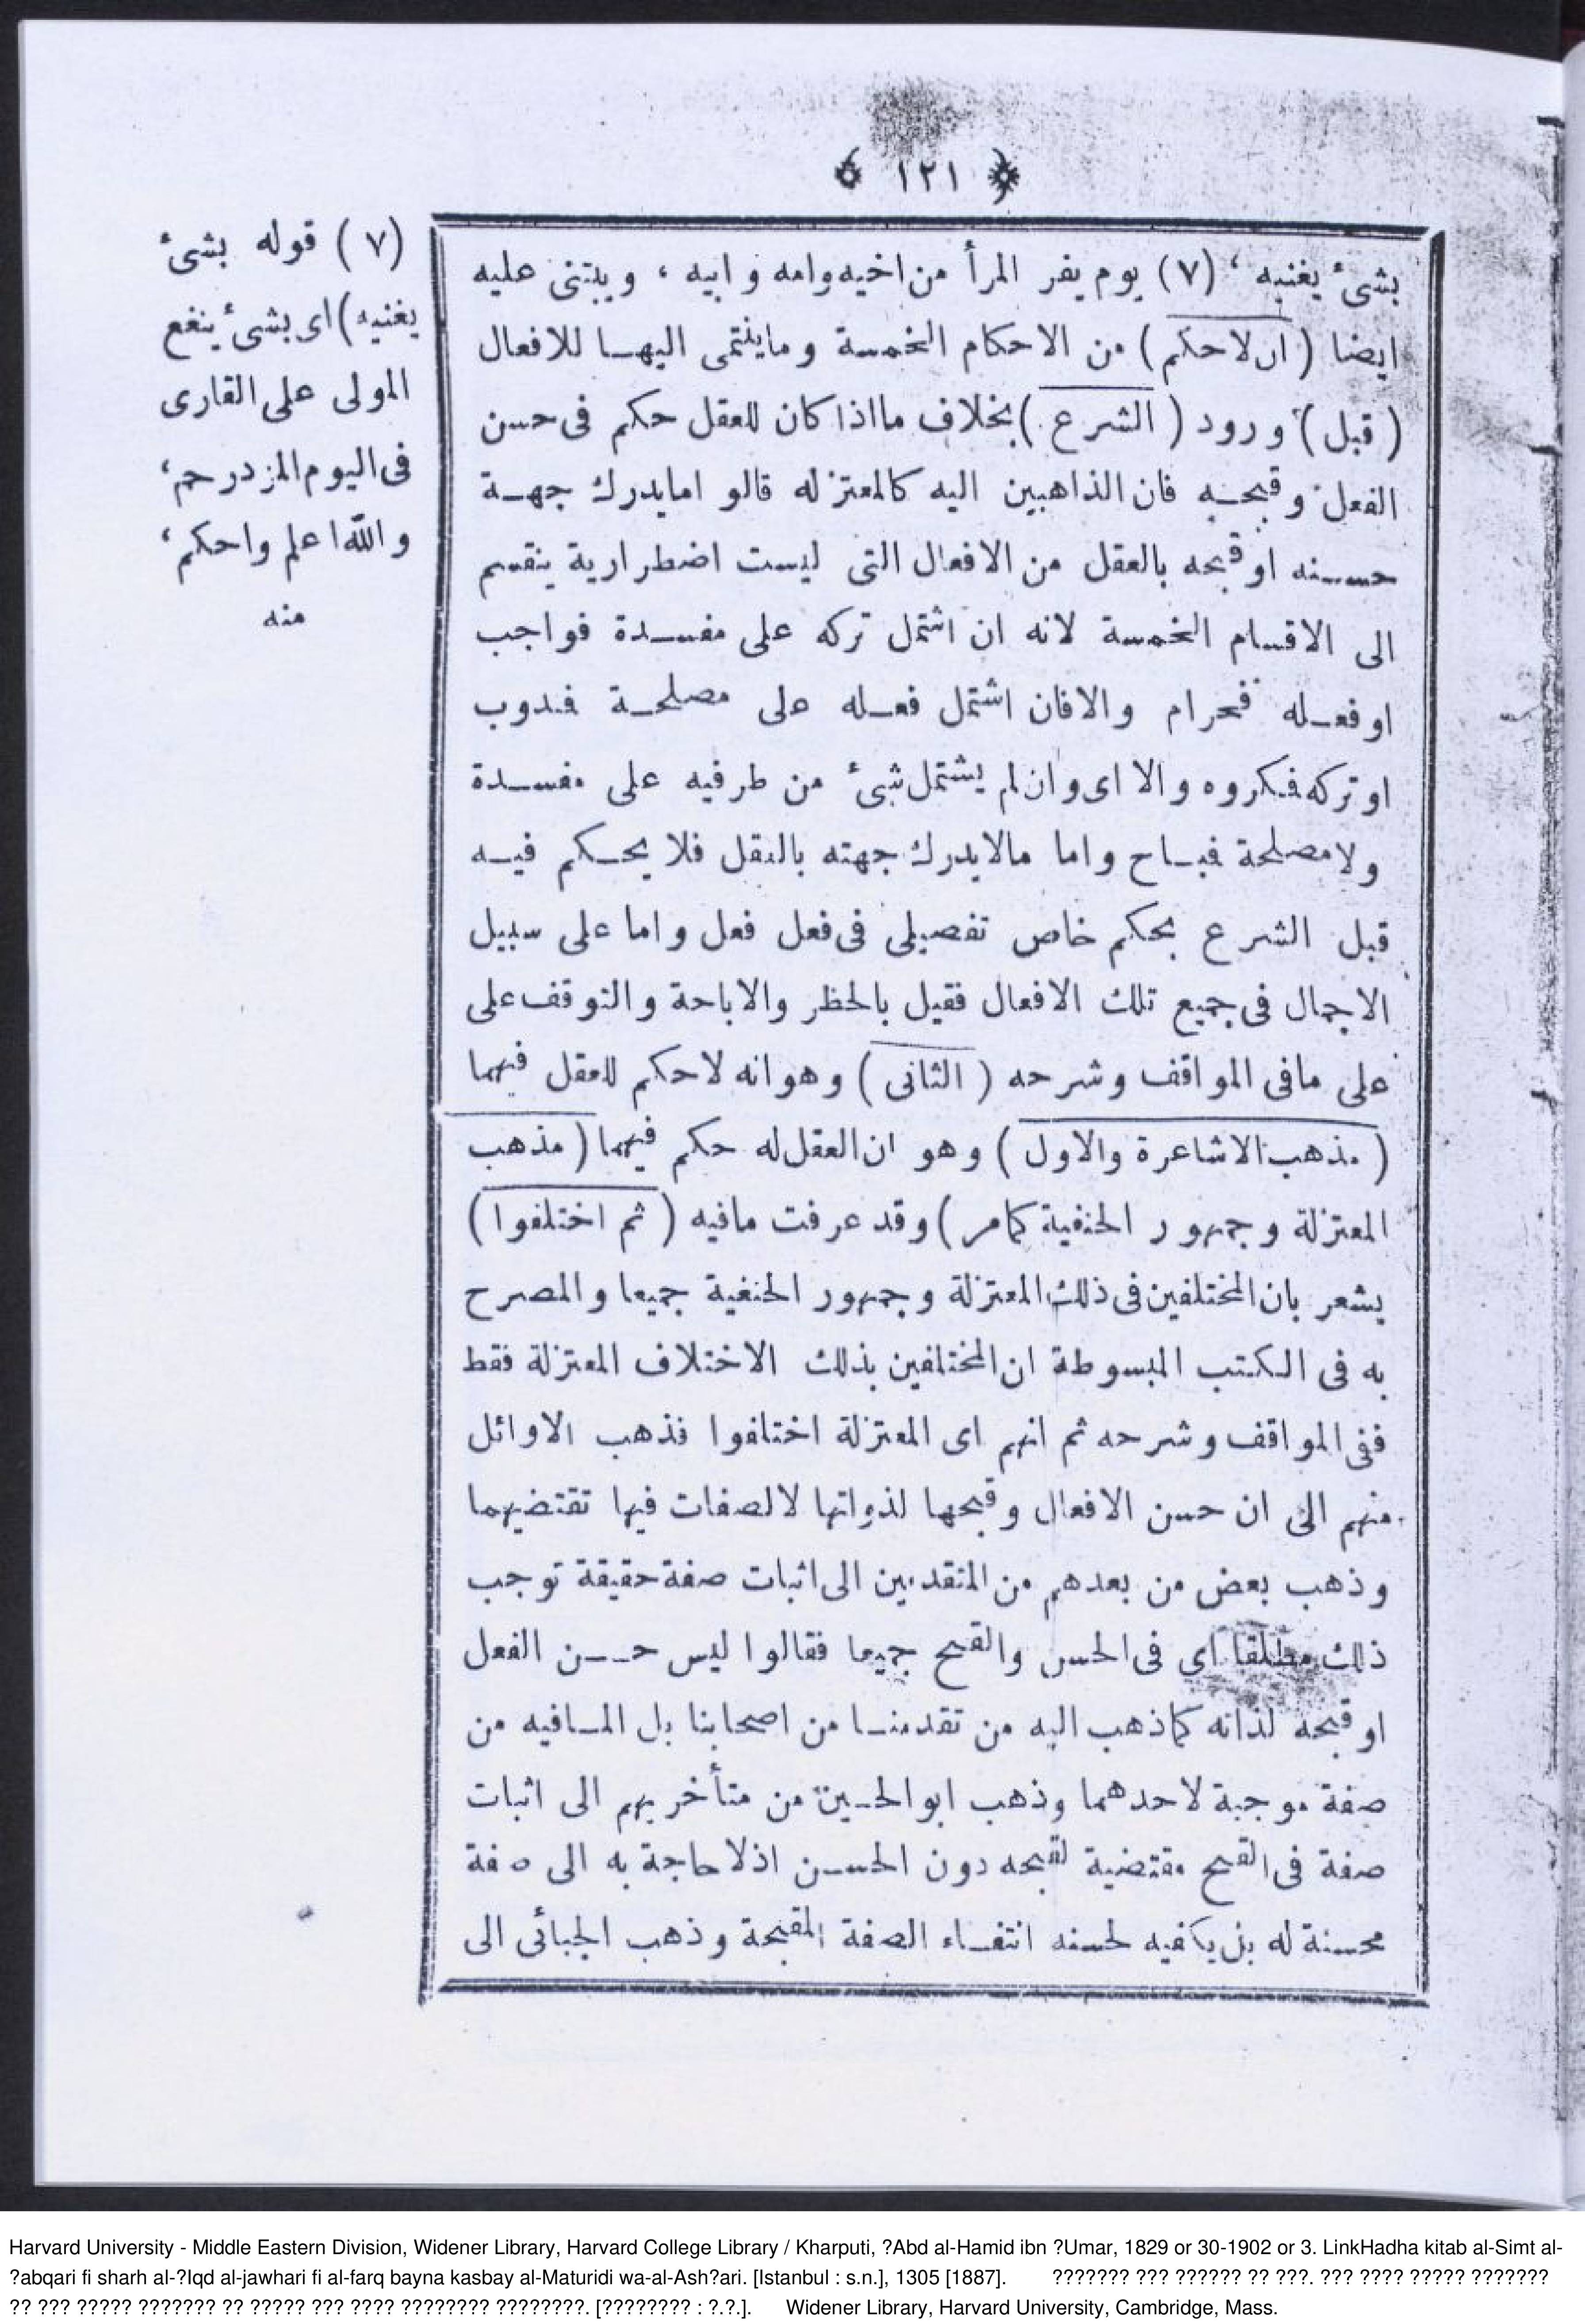 ﴿ ١٢١ ﴾
بشئ يغنيه ، (٧) يوم يفر المرأ من اخيه وامه وابيه ، ويبتنى عليه
ايضا ( ان لاحكم ) من الاحكام الخمسة وما ينتمى اليها للافعال
( قبل ) ورود ( الشرع ) بخلاف ما اذا كان للعقل حكم فى حسن
الفعل وقبحه فان الذاهبين اليه كالمعتزله قالو اما يدرك جهة
حسنه او قبحه بالعقل من الافعال التى ليست اضطرارية ينقسم
الى الاقسام الخمسة لانه ان اشتمل تركه على مفسدة فواجب
او فعله فحرام والا فان اشتمل فعله على مصلحة فندوب
او تركه فكروه والا اى وان لم يشتمل شئ من طرفيه على مفسدة
ولا مصلحة فباح واما مالا يدرك جهته بالعقل فلا يحكم فيه
قبل الشرع بحكم خاص تفصيلى فى فعل فعل واما على سبيل
الاجمال فى جميع تلك الافعال فقيل بالحظر والاباحة والتوقف على
على ما فى المواقف وشرحه ( الثانى ) وهو انه لاحكم للعقل فيهما
( مذهب الاشاعرة والاول ) وهو ان العقل له حكم فيهما ( مذهب
المعتزلة وجمهور الحنفية كمامر ) وقد عرفت مافيه ( ثم اختلفوا )
يشعر بان المختلفين فى ذلك المعتزلة وجمهور الحنفية جميعا والمصرح
به فى الكتب المبسوطة ان المختلفين بذلك الاختلاف المعتزلة فقط
ففى المواقف وشرحه ثم انهم اى المعتزلة اختلفوا فذهب الاوائل
منهم الى ان حسن الافعال وقبحها لذواتها لا لصفات فيها تقتضيهما
وذهب بعض من بعدهم من المتقدمين الى اثبات صفة حقيقة توجب
ذلك مطلقا اى فى الحسن والقبح جميعا فقالوا ليس حسن الفعل
او قبحه لذاته كما ذهب اليه من تقدمنا من اصحابنا بل لما فيه من
صفة موجبة لاحدهما وذهب ابو الحسين من متأخريهم الى اثبات
صفة فى القبح مقتضية لقبحه دون الحسن اذ لا حاجة به الى صفة
محسنة له بل يكفيه لحسنه انتفاء الصفة المقبحة وذهب الجبائى الى
(٧) قوله بشئ
يغنيه) اى بشئ ينفع
المولى على القارى
فى اليوم المزدرحم،
والله اعلم واحكم،
منه
Harvard University - Middle Eastern Division, Widener Library, Harvard College Library / Kharputi, ?Abd al-Hamid ibn ?Umar, 1829 or 30-1902 or 3. LinkHadha kitab al-Simt al-
?abqari fi sharh al-?Iqd al-jawhari fi al-farq bayna kasbay al-Maturidi wa-al-Ash?ari. [Istanbul : s.n.], 1305 [1887]. ??????? ??? ?????? ?? ???. ??? ???? ????? ???????
?? ??? ????? ??????? ?? ????? ??? ???? ???????? ????????. [???????? : ?.?.]. Widener Library, Harvard University, Cambridge, Mass.